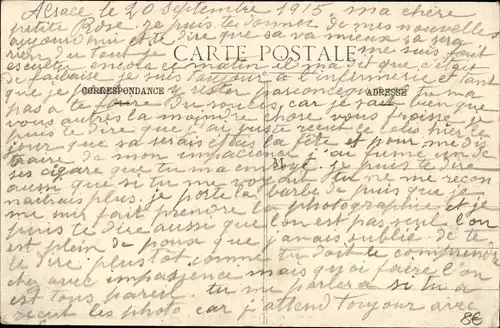 Alsace le 20 Septembre 1915 ma chère
petite Rose je puis te donner de mes nouvelles
aujourd'hui et te dire que sa va mieux sa
rien du tout je me suis fait
CARTE POSTALE
encola ce matin il ma dit que c'était
de faiblaise je suis toujour à l'infirmerie et tant
que je puis y rester parconcequen tu ma
CORRESPONDANCE
ADRESSE
pas a te faire du soucis, car je sait bien que
vous autres la moindre chose vous froisse je
puis te dire que j'ai juste recut le colis hier le
jour que sa serais etais la fête et pour me dis
traire de mon impacience j'ai fumé un de
ses cigare que tu ma envoyé. je puis te dire
aussi que si tu me voyait tu ne me recon
naitrais plus, je porte la barbe de puis que je
me sui fait prendre la photographie et je
puis te dire aussi que l'on est pas seule l'on
est plein de poux que j'anais oublié de te
le dire plustôt comme tu doit le comprendre
chez avec impassience mais quoi faire l'on
est tous pareil. tu me parlera si tu a
recut les photo car j'attend toujour avec
8€